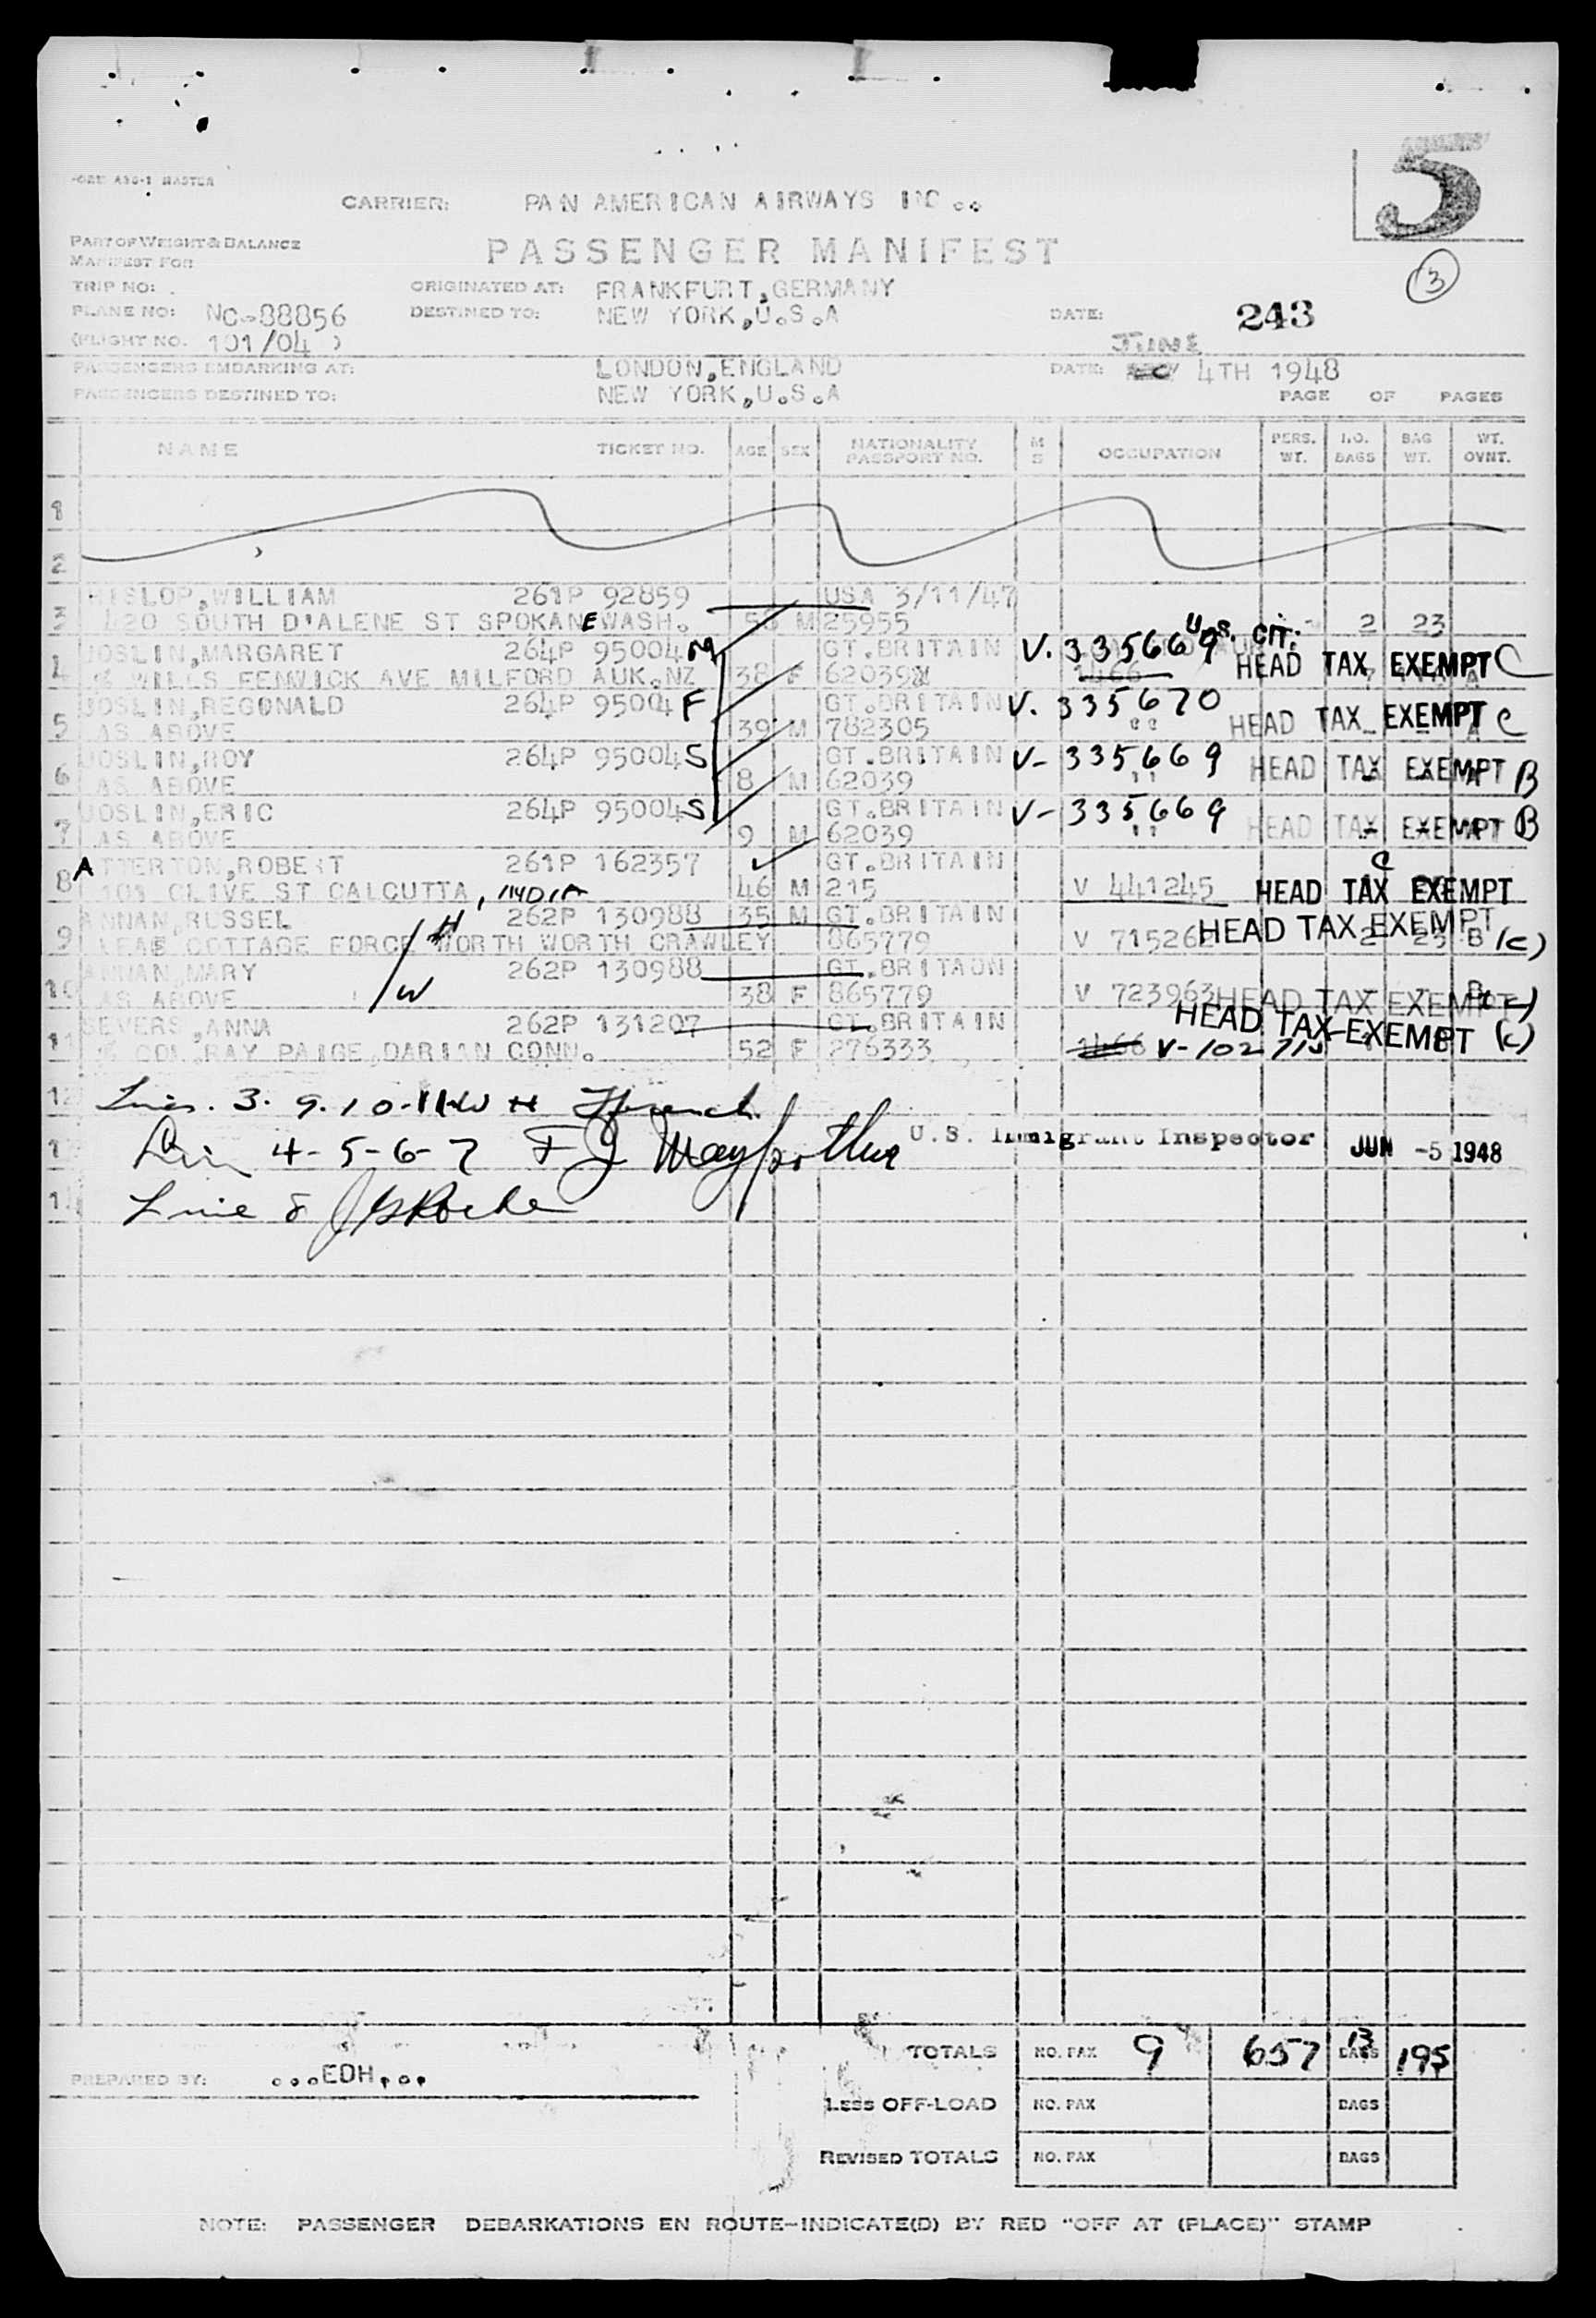 5
FORM A30-1 MASTER
CARRIER: PAN AMERICAN AIRWAYS INC..
PART OF WEIGHT & BALANCE
MANIFEST FOR
PASSENGER MANIFEST
3
TRIP NO: ORIGINATED AT: FRANKFURT,GERMANY
PLANE NO: NC-88856 DESTINED TO: NEW YORK,U.S.A DATE: 243
(FLIGHT NO. 101/04 ) JUNE
PASSENGERS EMBARKING AT: LONDON,ENGLAND DATE: 4TH 1948
PASSENGERS DESTINED TO: NEW YORK,U.S.A PAGE OF PAGES
NAME TICKET NO. AGE SEX NATIONALITY PASSPORT NO. M S OCCUPATION PERS. WT. NO. BAGS BAG WT. WT. OVNT.
1
2
HISLOP,WILLIAM 261P 92859 USA 3/11/47
3 420 SOUTH D'ALENE ST SPOKANE WASH. M 25955 U.S. CIT. 2 23
JOSLIN,MARGARET 264P 95004 M GT.BRITAIN V. 335669
4 % WILLS FENWICK AVE MILFORD AUK.NZ 38 F 62039 1466 HEAD TAX EXEMPT C
JOSLIN,REGONALD 264P 95004 F GT.BRITAIN V. 335670
5 AS ABOVE 39 M 782305 " HEAD TAX EXEMPT C
JOSLIN,ROY 264P 95004 S GT.BRITAIN V- 335669
6 AS ABOVE 8 M 62039 " HEAD TAX EXEMPT B
JOSLIN,ERIC 264P 95004 S GT.BRITAIN V- 335669
7 AS ABOVE 9 M 62039 " HEAD TAX EXEMPT B
ATTERTON,ROBERT 261P 162357 GT.BRITAIN C
8 101 CLIVE ST CALCUTTA, INDIA 46 M 215 V 441245 HEAD TAX EXEMPT
ANNAN,RUSSEL H 262P 130988 35 M GT.BRITAIN HEAD TAX EXEMPT
9 COTTAGE FORCE WORTH WORTH CRAWLEY 865779 V 715262 2 23 B (C)
ANNAN,MARY 262P 130988 GT.BRITAUN
10 AS ABOVE W 38 F 865779 V 723963 HEAD TAX EXEMPT
SEVERS,ANNA 262P 131207 GT.BRITAIN HEAD TAX EXEMPT (C)
11 % COL.RAY PAIGE,DARIAN CONN. 52 F 276333 1466 V-102715
12 Lines. 3. 9. 10. 11
Line 4-5-6-7 F J U.S. Immigrant Inspector JUN -5 1948
Line 8
TOTALS NO. PAX 9 657 BAGS 13 195
PREPARED BY: ...EDH...
LESS OFF-LOAD NO. PAX BAGS
REVISED TOTALS NO. PAX BAGS
NOTE: PASSENGER DEBARKATIONS EN ROUTE-INDICATE(D) BY RED "OFF AT (PLACE)" STAMP